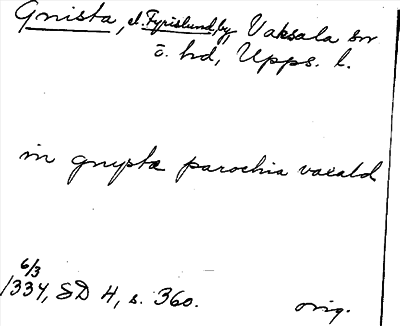 Gnista, el. Fyrislund, by Vaksala sn
ö. hd, Upps. l.
in gnypta parochia vaxald
6/3
1334, SD 4, s. 360. orig.